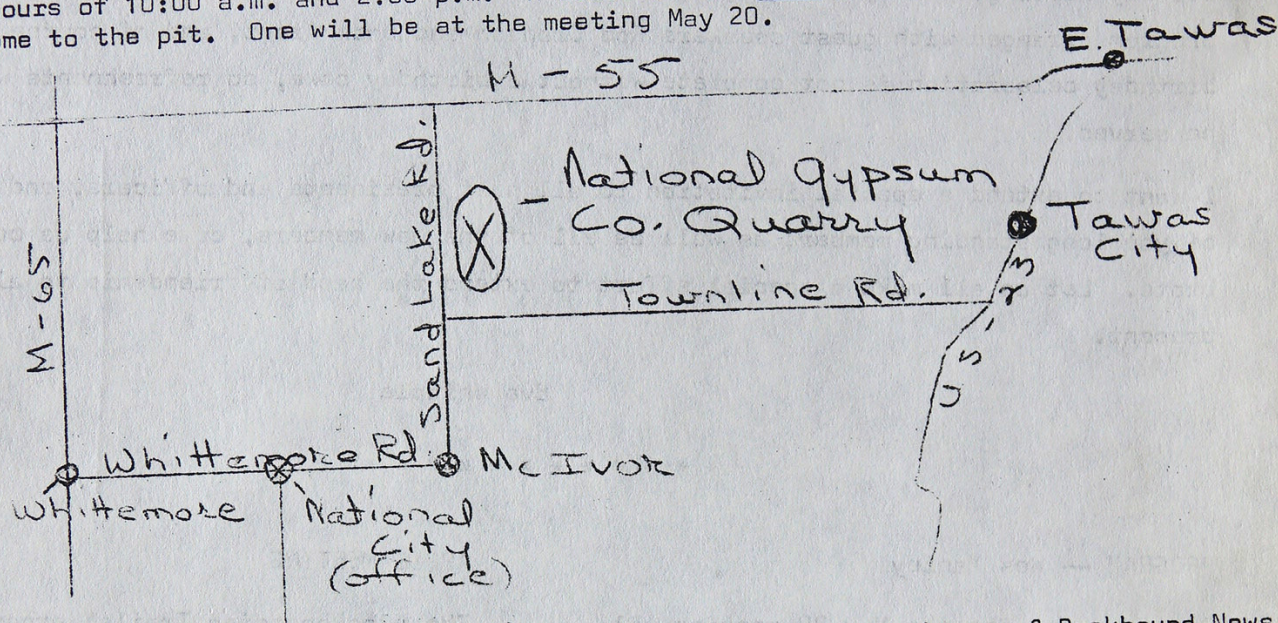 ours of 10:00 a.m. and
ome to the pit. One will be at the meeting May 20.
E. Tawas
M-55
Sand Lake Rd.
National Gypsum
Co. Quarry
X
Tawas
City
M-65
Townline Rd.
U.S. 23
Whittemore Rd.
McIvor
Whittemore
National
City
(office)
Rockhound News